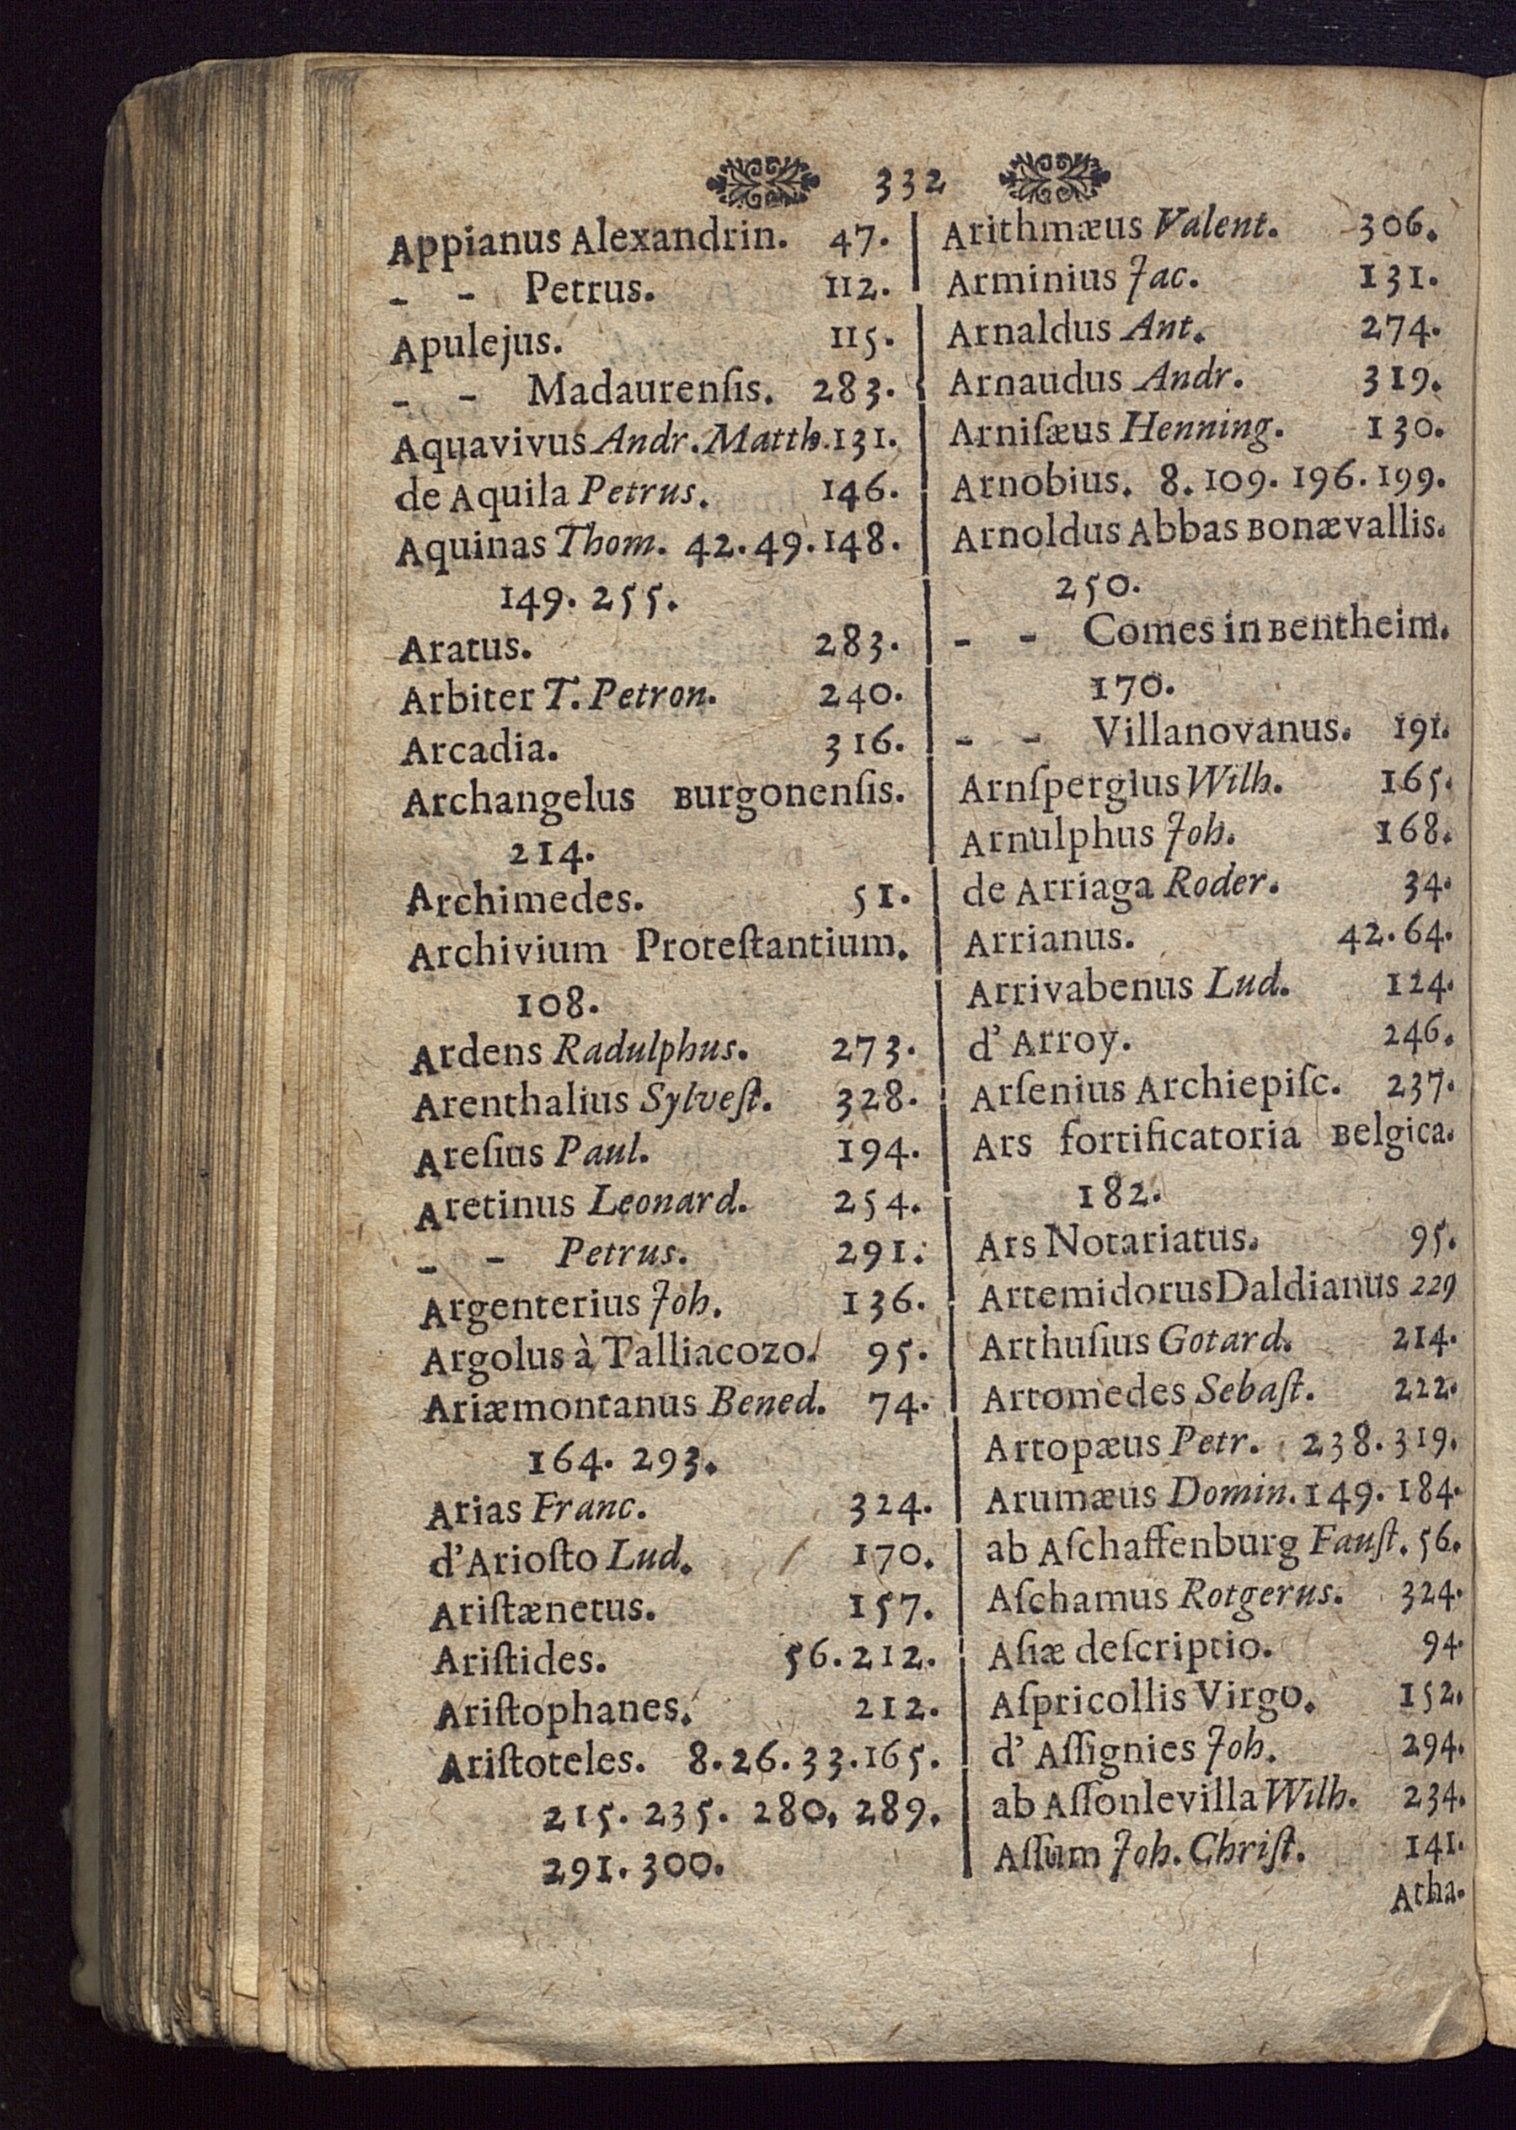 332
Appianus Alexandrin. 47.
- - Petrus. 112.
Apulejus. 115.
- - Madaurenſis. 283.
Aquavivus Andr. Matth. 131.
de Aquila Petrus. 146.
Aquinas Thom. 42. 49. 148.
149. 255.
Aratus. 283.
Arbiter T. Petron. 240.
Arcadia. 316.
Archangelus Burgonenſis.
214.
Archimedes. 51.
Archivium Proteſtantium.
108.
Ardens Radulphus. 273.
Arenthalius Sylveſt. 328.
Areſius Paul. 194.
Aretinus Leonard. 254.
- - Petrus. 291.
Argenterius Joh. 136.
Argolus à Talliacozo. 95.
Ariæmontanus Bened. 74.
164. 293.
Arias Franc. 324.
d'Arioſto Lud. 170.
Ariſtænetus. 157.
Ariſtides. 56. 212.
Ariſtophanes. 212.
Ariſtoteles. 8. 26. 33. 165.
215. 235. 280. 289.
291. 300.
Arithmæus Valent. 306.
Arminius Jac. 131.
Arnaldus Ant. 274.
Arnaudus Andr. 319.
Arniſæus Henning. 130.
Arnobius. 8. 109. 196. 199.
Arnoldus Abbas Bonævallis.
250.
- - Comes in Bentheim.
170.
- - Villanovanus. 191.
Arnſpergius Wilh. 165.
Arnulphus Joh. 168.
de Arriaga Roder. 34.
Arrianus. 42. 64.
Arrivabenus Lud. 124.
d' Arroy. 246.
Arſenius Archiepiſc. 237.
Ars fortificatoria Belgica.
182.
Ars Notariatus. 95.
Artemidorus Daldianus 229
Arthuſius Gotard. 214.
Artomedes Sebaſt. 222.
Artopæus Petr. 238. 319.
Arumæus Domin. 149. 184.
ab Aſchaffenburg Fauſt. 56.
Aſchamus Rotgerus. 324.
Aſiæ deſcriptio. 94.
Aſpricollis Virgo. 152.
d' Aſſignies Joh. 294.
ab Aſſonlevilla Wilh. 234.
Aſſum Joh. Chriſt. 141.
Atha.